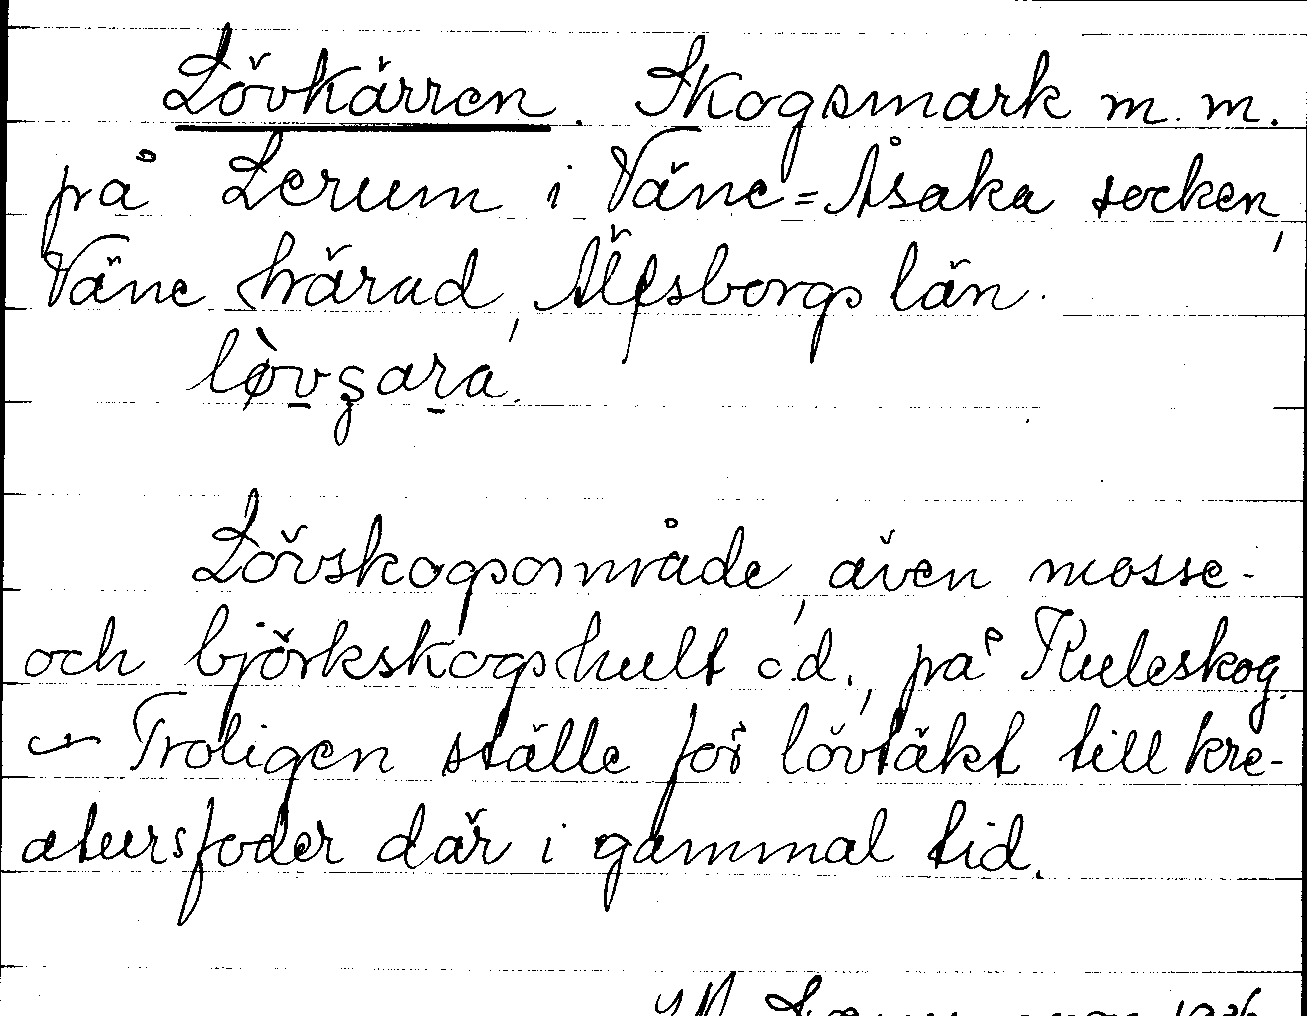 Lövkärren. Skogsmark m. m.
på Lerum i Väne=Åsaka socken,
Väne härad, Älfsborgs län.
lo̊vʂara.
Lövskogsområde, även mosse-
och björkskogshult o.d., på Kuleskog.
Troligen ställe för lövtäkt till kre-
atursfoder där i gammal tid.